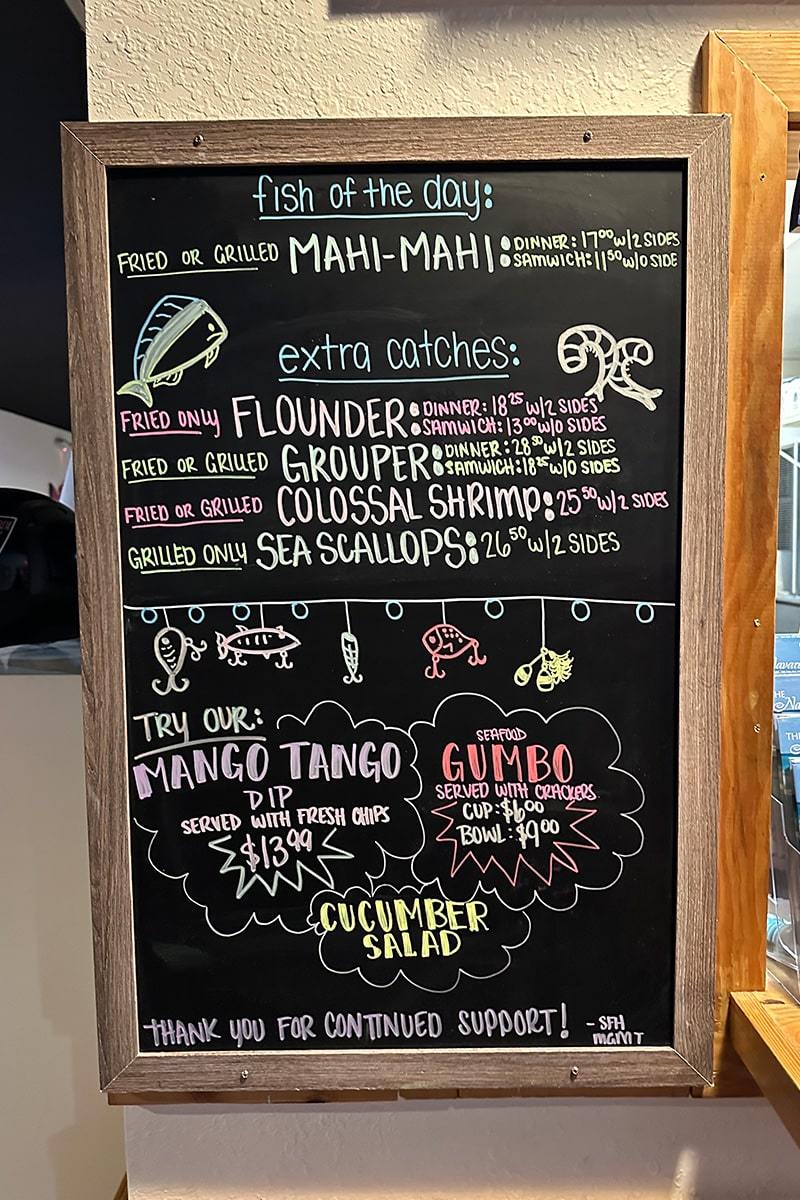 fish of the day:
FRIED OR GRILLED MAHI-MAHI • DINNER: 17⁰⁰ w/2 SIDES
• SAMWICH: 11⁵⁰ w/o SIDE
extra catches:
FRIED ONLY FLOUNDER • DINNER: 18²⁵ w/2 SIDES
• SAMWICH: 13⁰⁰ w/o SIDES
FRIED OR GRILLED GROUPER • DINNER: 28⁵⁰ w/2 SIDES
• SAMWICH: 18²⁵ w/o SIDES
FRIED OR GRILLED COLOSSAL SHRIMP: 25⁵⁰ w/2 SIDES
GRILLED ONLY SEA SCALLOPS: 26⁵⁰ w/2 SIDES
TRY OUR:
MANGO TANGO
DIP
SERVED WITH FRESH CHIPS
$13⁹⁹
SEAFOOD
GUMBO
SERVED WITH CRACKERS
CUP: $6⁰⁰
BOWL: $9⁰⁰
CUCUMBER
SALAD
THANK YOU FOR CONTINUED SUPPORT! - SFH
MGMT